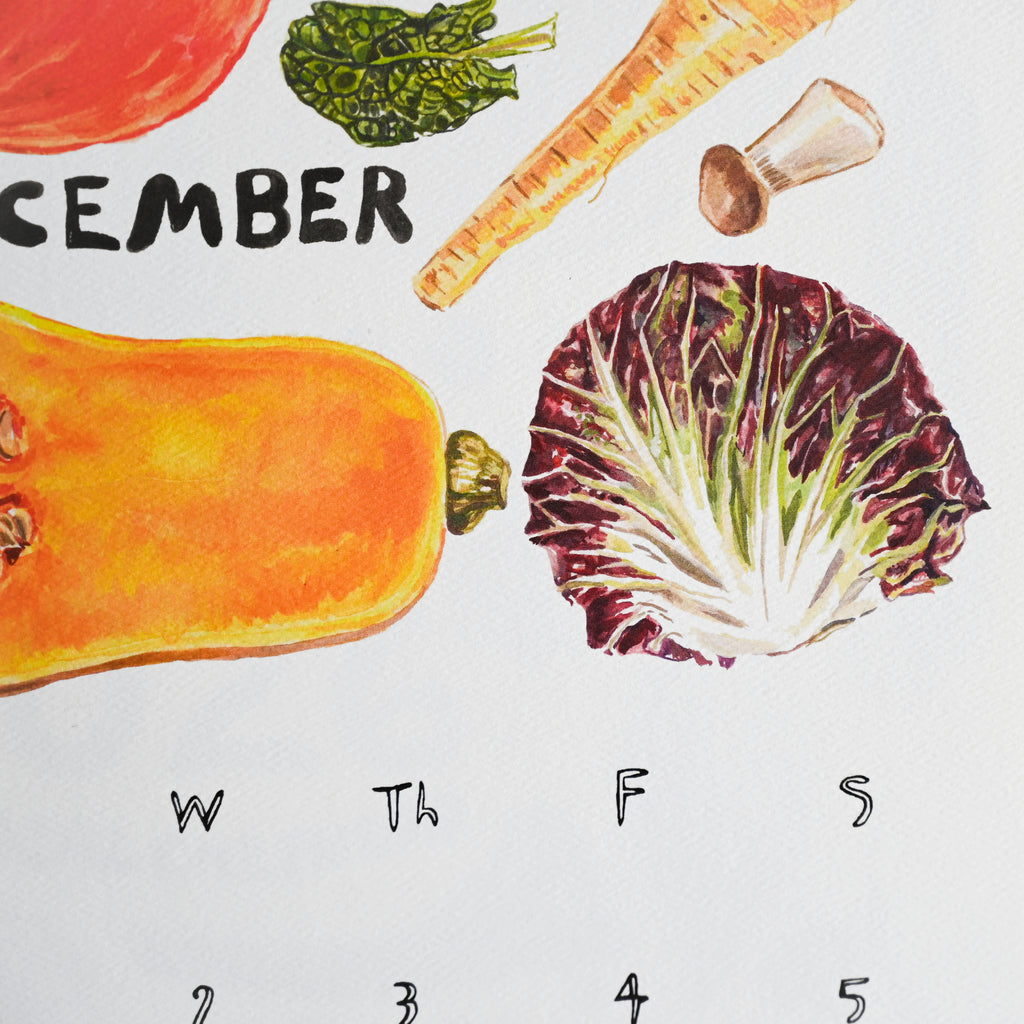 CEMBER
W Th F S
2 3 4 5